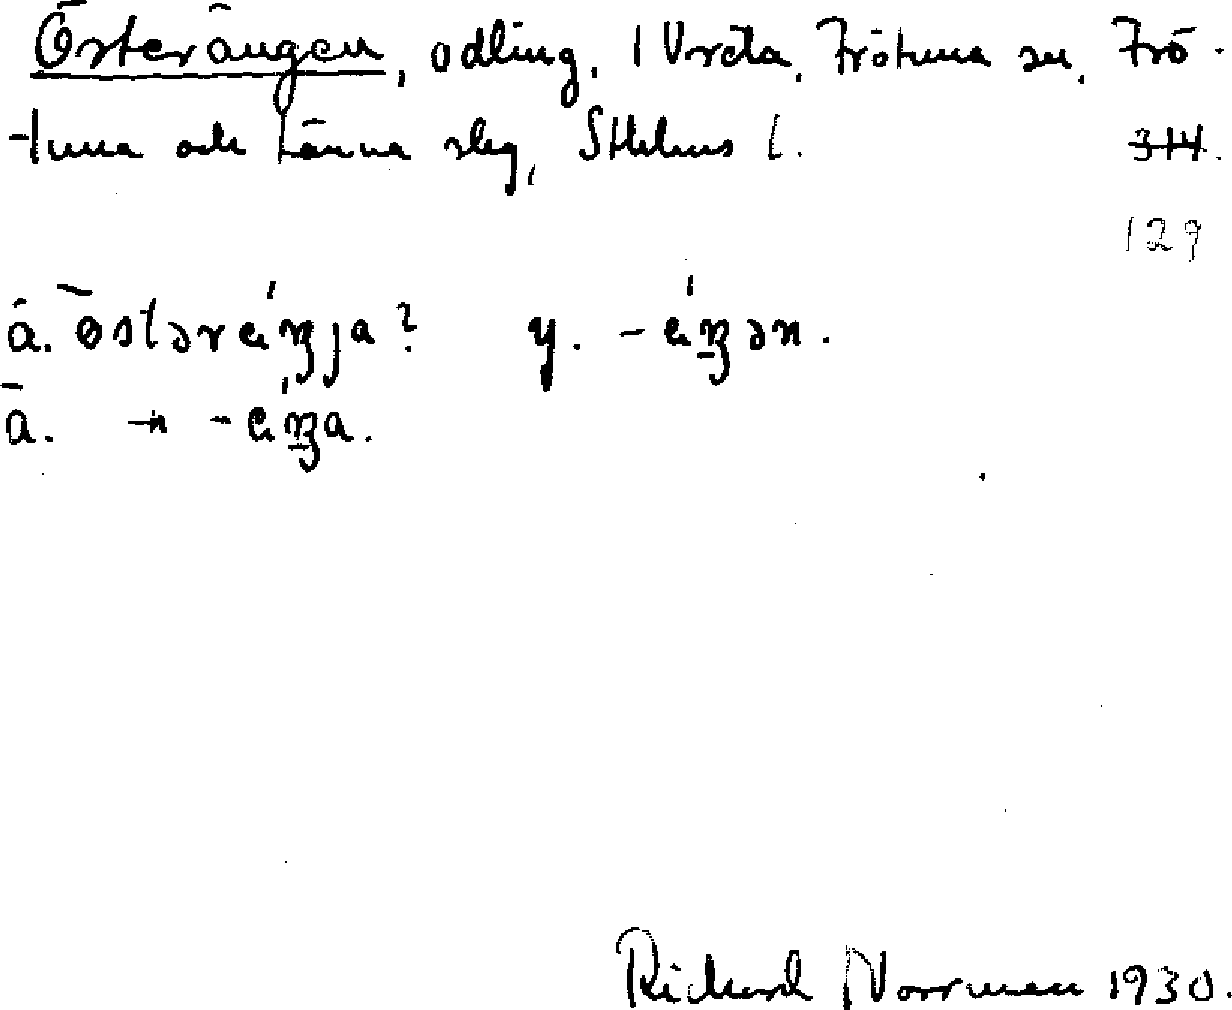 Österängen, odling, 1 Vreta, Frötuna sn, Frö-
tuna och Länna slg, Sthlms l. 314.
129
å. östəräŋja? y. -äŋən.
ä. -n -äŋa.
Richard Norrman 1930.